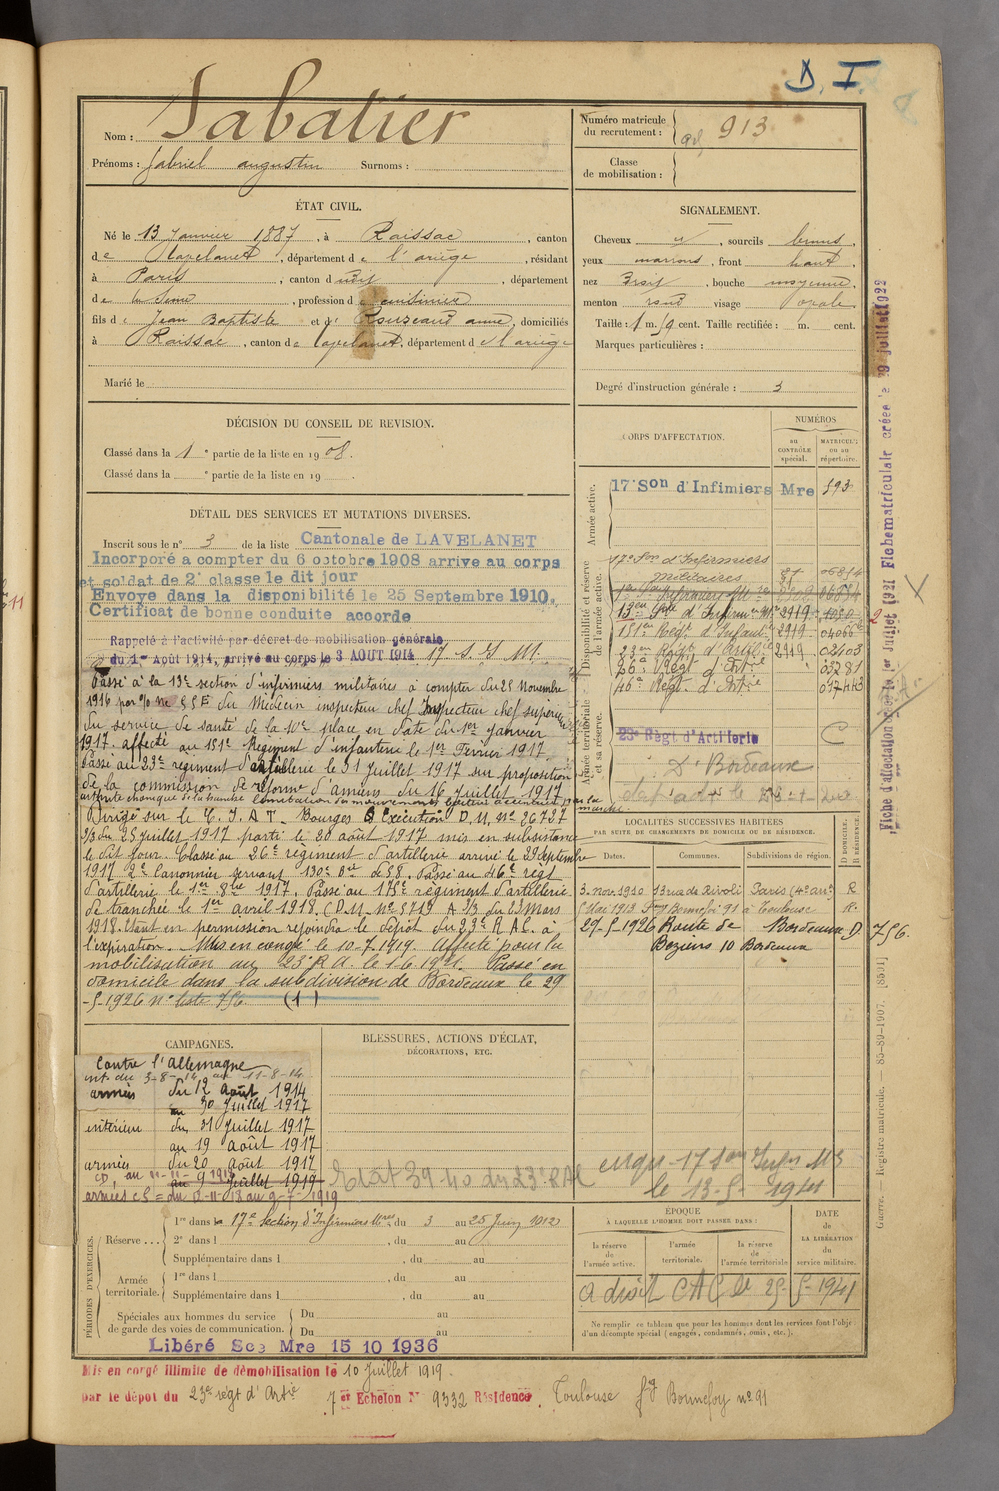 D. I.
Nom : Sabatier
Prénoms : Gabriel augustin Surnoms :
Numéro matricule du recrutement : 913
Classe de mobilisation :
ÉTAT CIVIL.
Né le 13 Janvier 1887, à Raissac, canton
de Lavelanet, département de l'ariège, résidant
à Paris, canton dudit, département
de la Seine, profession de cuisinier
fils de Jean Baptiste et de Rouzeaud anne, domiciliés
à Raissac, canton de Lavelanet, département de l'ariège
Marié le
SIGNALEMENT.
Cheveux , sourcils bruns,
yeux marrons, front haut,
nez Droit, bouche moyenne,
menton rond visage ovale
Taille : 1 m. cent. Taille rectifiée : m. cent.
Marques particulières :
Degré d'instruction générale : 3
DÉCISION DU CONSEIL DE REVISION.
Classé dans la 1e partie de la liste en 1908.
Classé dans la e partie de la liste en 19 .
DÉTAIL DES SERVICES ET MUTATIONS DIVERSES.
Inscrit sous le n° 3 de la liste Cantonale de LAVELANET
Incorporé a compter du 6 octobre 1908 arrive au corps
et soldat de 2e classe le dit jour
Envoye dans la disponibilité le 25 Septembre 1910.
Certificat de bonne conduite accorde
Rappelé à l'activité par décret de mobilisation générale
du 1er Août 1914, arrivé au corps le 3 AOUT 1914 17 S. I. M.
Passé à la 13e section d'infirmiers militaires à compter du 25 Novembre
1916 par du Médecin inspecteur chef supérieur
du service de santé de la 10e place en date du 1er janvier
1917. affecté au 151e Régiment d'infanterie le 1er Février 1917
Passé au 23e régiment d'artillerie le 31 Juillet 1917 sur proposition
de la commission de réforme d'amiens du 16 Juillet 1917
Dirigé sur le C. I. A T. Bourges Exécution D. M. No 26727
3/3 du 25 juillet 1917 parti le 20 août 1917 mis en subsistance
le dit jour. Classé au 26e régiment d'artillerie arrivé le 29 Septembre
1917 2e Canonnier servant 130e Bie de 58. Passé au 46e régt
d'artillerie le 1er 8bre 1917. Passé au 175e régiment d'artillerie
de tranchée le 1er avril 1918. (D.M. No 5719 A 3/3 du 23 Mars
1918. Etant en permission rejoindra le dépôt du 23e R.A.C. à
l'expiration. Mis en congé le 10-7-1919. Affecté pour la
mobilisation au 23e R.A. le 1-6-1921. Passé en
domicile dans la subdivision de Bordeaux le 29
-5-1926 n° liste 756 (1)
CORPS D'AFFECTATION.
NUMÉROS
au CONTRÔLE spécial.
MATRICULE ou au répertoire.
Armée active.
17e Son d'Infirmiers Mre 593
Disponibilité et réserve de l'armée active.
17e Son d'Infirmiers
militaires
151e Régt d'Infanie 2919
23e Régt d'Artie 2919 02403
26e Régt d'Artie 03781
46e Régt. d'Artie 037443
Armée territoriale et sa réserve.
23e Régt d'Artillerie C
D. Bordeaux
LOCALITÉS SUCCESSIVES HABITÉES
PAR SUITE DE CHANGEMENTS DE DOMICILE OU DE RÉSIDENCE.
Dates. Communes. Subdivisions de région. D DOMICILE. R RÉSIDENCE.
3. nov. 1910 13 rue de Rivoli Paris (4e arrt) R
Mai 1913 Bonnefoi 91 à Toulouse R.
29-5-1926 Route de Bordeaux D 756
Beziers 10 Bordeaux
CAMPAGNES.
Contre l'Allemagne
int. du 3-8-14 au 11-8-14
armées du 12 août 1914
au 30 Juillet 1917
intérieur du 31 Juillet 1917
au 19 août 1917
armées du 20 août 1917
au 9 Juillet 1919
BLESSURES, ACTIONS D'ÉCLAT,
DÉCORATIONS, ETC.
Etat 39-40 du 23e RAC
17 Son Infrs Mes
le 13-5-1941
PÉRIODES D'EXERCICES.
Réserve . . . 1re dans la 17e Section d'Infirmiers Mres du 3 au 25 Juin 1912
2e dans l , du au
Supplémentaire dans l , du au
Armée territoriale. 1re dans l , du au
Supplémentaire dans l , du au
Spéciales aux hommes du service de garde des voies de communication. Du au
Du au
Libéré Sce Mre 15 10 1936
ÉPOQUE
À LAQUELLE L'HOMME DOIT PASSER DANS :
la réserve de l'armée active.
l'armée territoriale.
la réserve de l'armée territoriale
DATE de LA LIBÉRATION du service militaire.
a droit CAC le 25-5-1941
Ne remplir ce tableau que pour les hommes dont les services font l'objet
d'un décompte spécial (engagés, condamnés, omis, etc.).
Mis en congé illimité de démobilisation le 10 Juillet 1919.
par le dépôt du 23e régt d'Artie 7e Echelon No 9332 Résidence, Toulouse fg Bonnefoy no 91
Fiche d'affectation créée le 1er Juillet 1921 Fiche matriculaire créée le 29 juillet 1922
Guerre. — Registre matricule. — 85-89-1907. [8501]